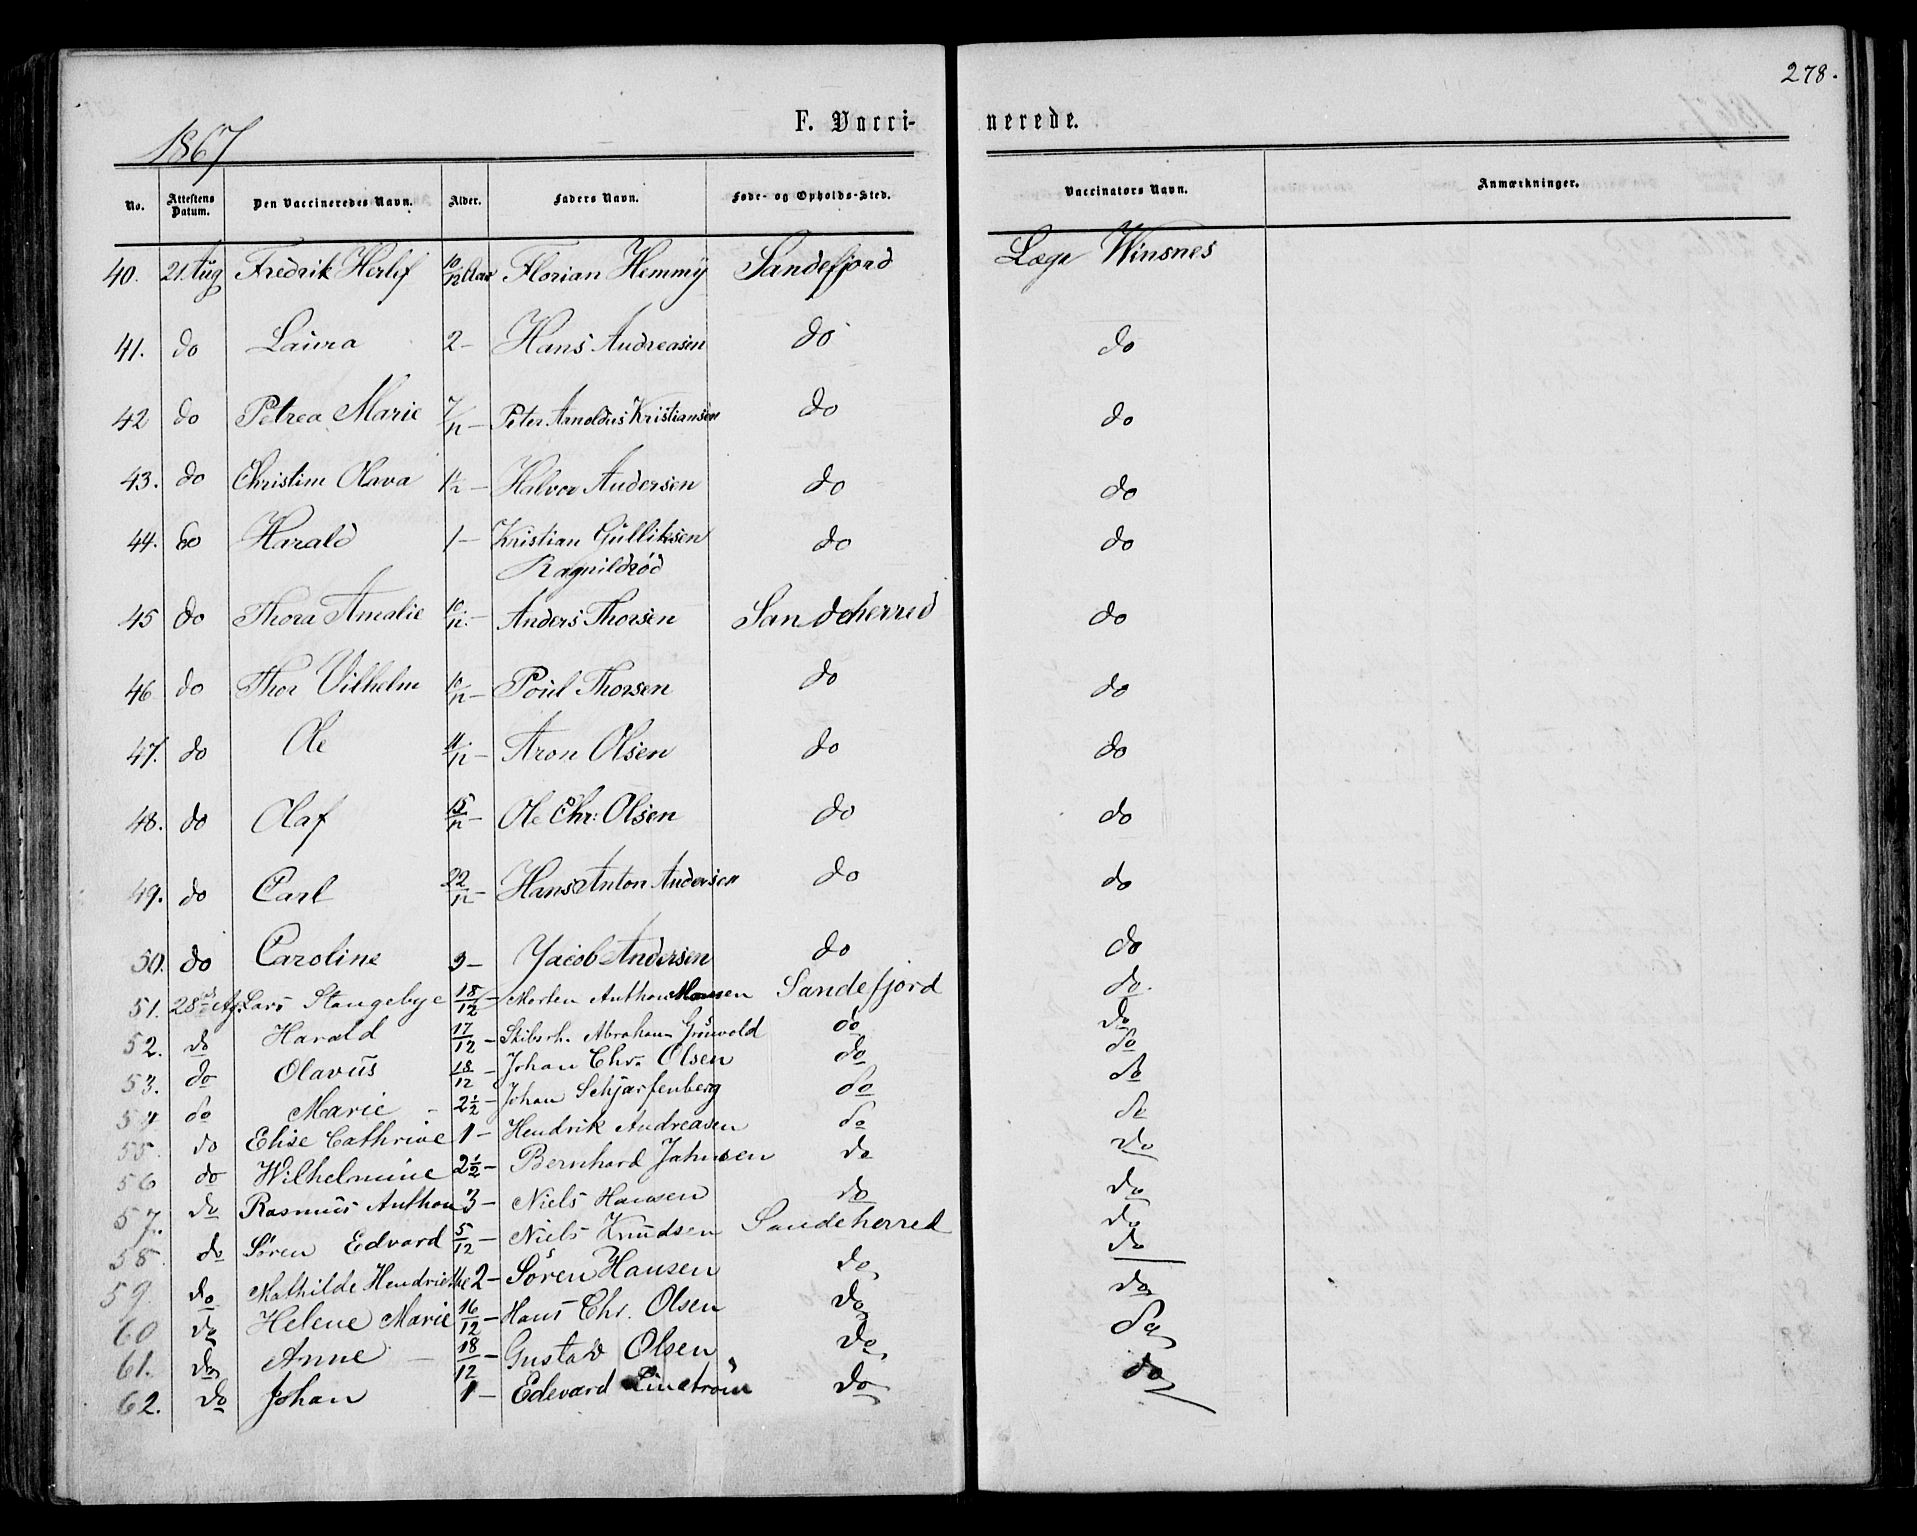 278.
1867
F. Vacci- nerede.
No. Attestens Datum. Den Vaccineredes Navn. Alder. Faders Navn. Føde- og Opholds-Sted. Vaccinators Navn. Anmærkninger.
40. 21 Aug Fredrik Herlef 10/12 Aar Florian Hemmÿ Sandefjord Læge Winsnes
41. do Laura 2 – Hans Andreasen do do
42 do Petrea Marie 7/12 – Peter Arnoldus Kristiansen do do
43. do Christine Olava 1½ – Halvor Andersen do do
44. do Harald 1 – Kristian Gulliksen do do
Ragnildrød
45 do Thora Amalie 10/12 – Anders Thorsen Sandeherred do
46 do Thor Vilhelm 10/12 – Poul Thorsen do do
47. do Ole 11/12 – Aron Olsen do do
48. do Olaf 15/12 – Ole Chr: Olsen do do
49. do Carl 22/12 – Hans Anton Andersen do do
50. do Caroline 3 – Jacob Andersen do do
51. 28 Lars Stangebye 18/12 – Morten Anthon Sandefjord do.
52. do Harald 17/12 – Skibsrh. Abraham Grönvold do do
53. do Olavus 18/12 – Johan Chr. Olsen do do
54 do Marie – 2½ – Johan Schjarfenberg do do
55. do Elise Cathrine 1 – Hendrik Andreasen do do
56 do Wilhelmine 2½ – Bernhard Jahnsen do do
57. do Rasmus Anthon 3 – Niels Hansen do do
58 do Søren Edvard 5/12 – Niels Knudsen Sandeherred do
59 do Mathilde Hendriette 2 – Sören Hansen do do
60 do Helene Marie 16/12 – Hans Chr. Olsen do do
61. do Anne – 18/12 – Gustav Olsen do do
62. do Johan 1 – Edevard Linström do do